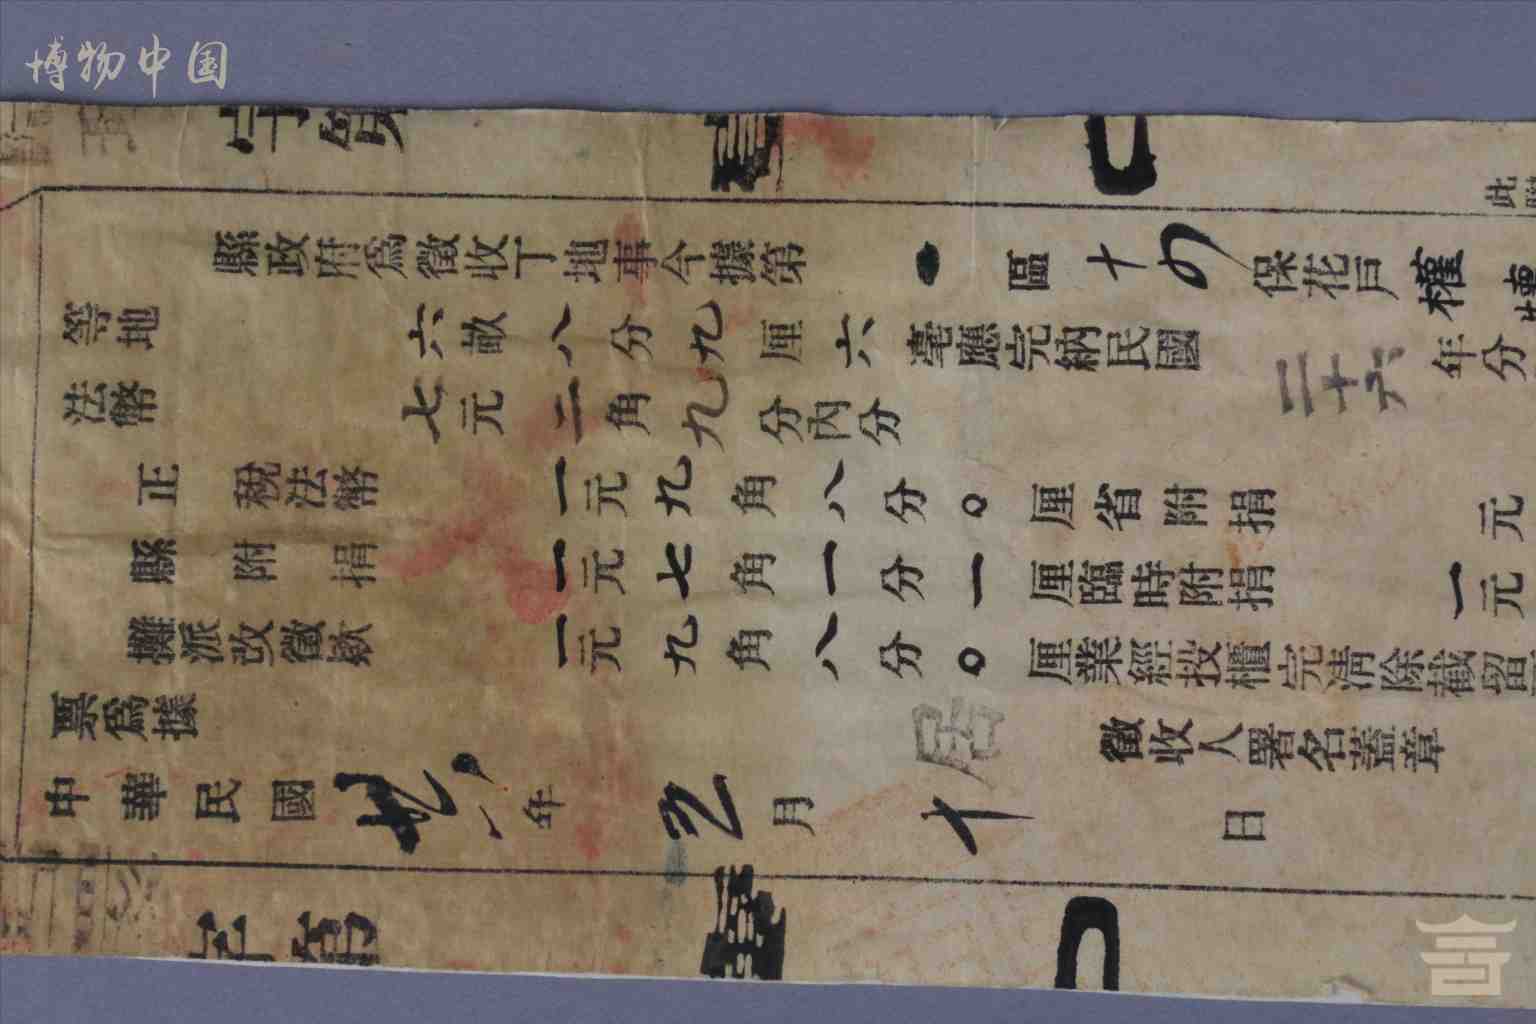 博物中国
字第
此聯
縣政府為徵收丁地事今據第區十四保花戶權
等地六畝八分九厘六毫應完納民國二十六年分
法幣七元二角九分內分
正稅法幣一元九角八分〇厘省附捐元
縣附捐一元七角一分一厘臨時附捐一元
攤派改徵款一元九角八分〇厘業經投櫃完清除截留
票為據徵收人署名蓋章
中華民國廿八年五月十日